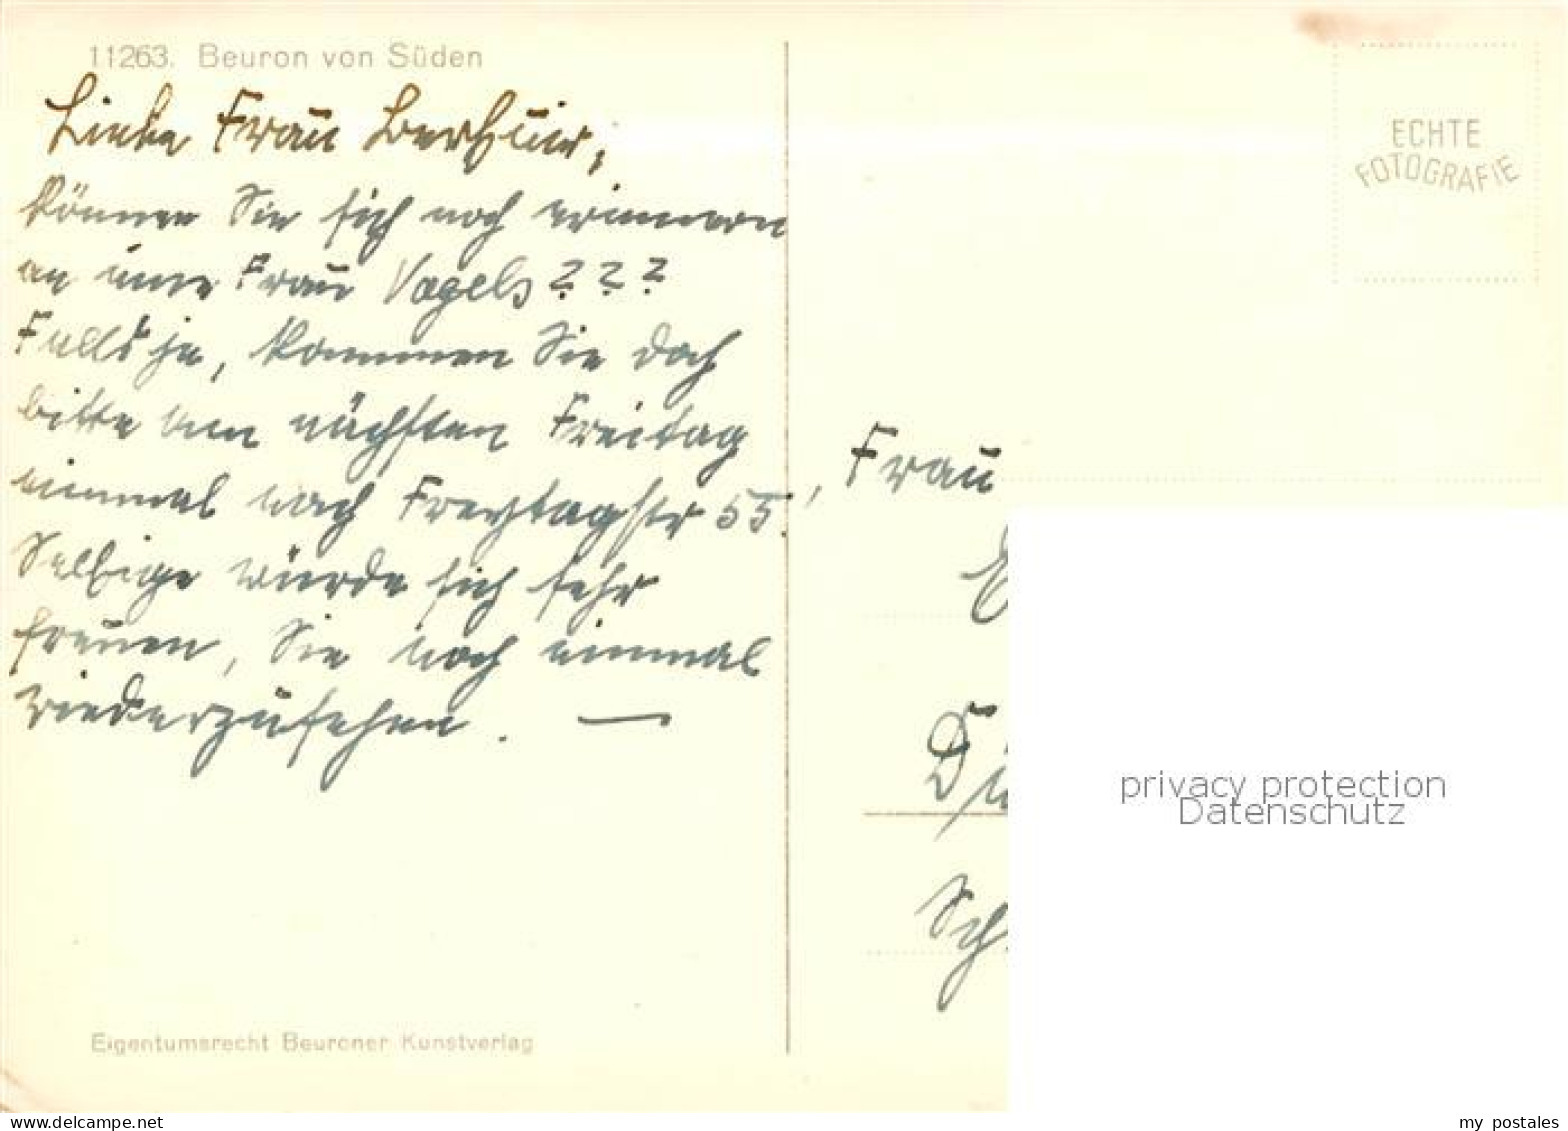 11263. Beuron von Süden
Liebe Frau
können Sie sich noch erinnern
an eine Frau Vogels???
Falls ja, kommen Sie doch
bitte am nächsten Freitag
einmal nach Freytagstr 55.
Selbige würde sich sehr
freuen, Sie noch einmal
wiederzusehen. —
Eigentumsrecht Beuroner Kunstverlag
ECHTE
FOTOGRAFIE
Frau
privacy protection
Datenschutz
my postales